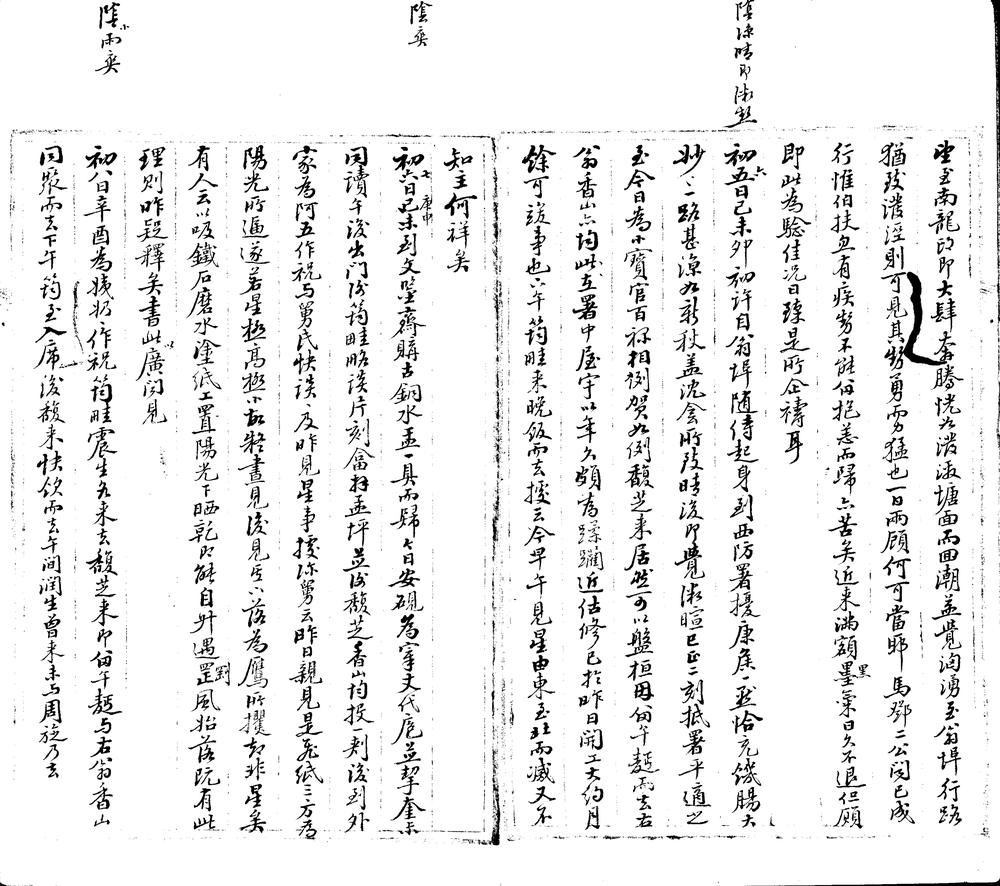 陰凉晴即潮熱
望至南龍卽即大肆奔騰恍如潑滾塘面而回潮益覺洶湧至翁埠行路
猶致潑溼則可見其勢勇而力猛也一日兩顧何可當耶馬鄧二公聞已成
行惟伯扶血有疾勞不能份抱恙而歸亦苦矣近来滿額墨氣日久不退但願
黑
即此為驗佳况日臻是所企禱耳
初五日己未卯初許自翁埠随侍起身到西防署擾康侯一熱恰充饑腸大
六
妙妙路甚凉如新秋盖沈陰所致晴後即覺潮暄巳正二刻抵署平適之
至今日為小寶官百禄相例賀如例馥芝来居然可以盤桓因份午麪而去右
翁香山亦均此在署中屋宇以年久頗為蹂躪近估修已於昨日開工大約月
餘可竣事也下午筠畦来晚飯而去據云今早午見星由東至北而滅又不
知主何祥矣
陰爽
初六日己未到文墨齋購古銅水盂一具而歸今日安硯為寧文代庖並挈奎官
七 庚申
同讀午後出門後筠畦略談片刻畣拜孟坪並後馥芝香山均投一刺後到外
家為阿五作祝与舅氏快談及昨見星事據渁舅云昨日親見是飛紙三方為
陽光所逼遂若星極高極小故整晝見後見匹下落為鷹所攫却非星矣
有人云以吸鐵石磨水塗紙上置陽光下晒乾即能自升遇罡風始落阮有此
剛
理則昨疑釋矣書此廣聞見
陰小雨爽
初八日辛酉為姨奶作祝筠畦震生各来去馥芝来即份午麪与右翁香山
同聚而去下午筠至入席後馥来快飲而去午间潤生曾来未与周旋乃去